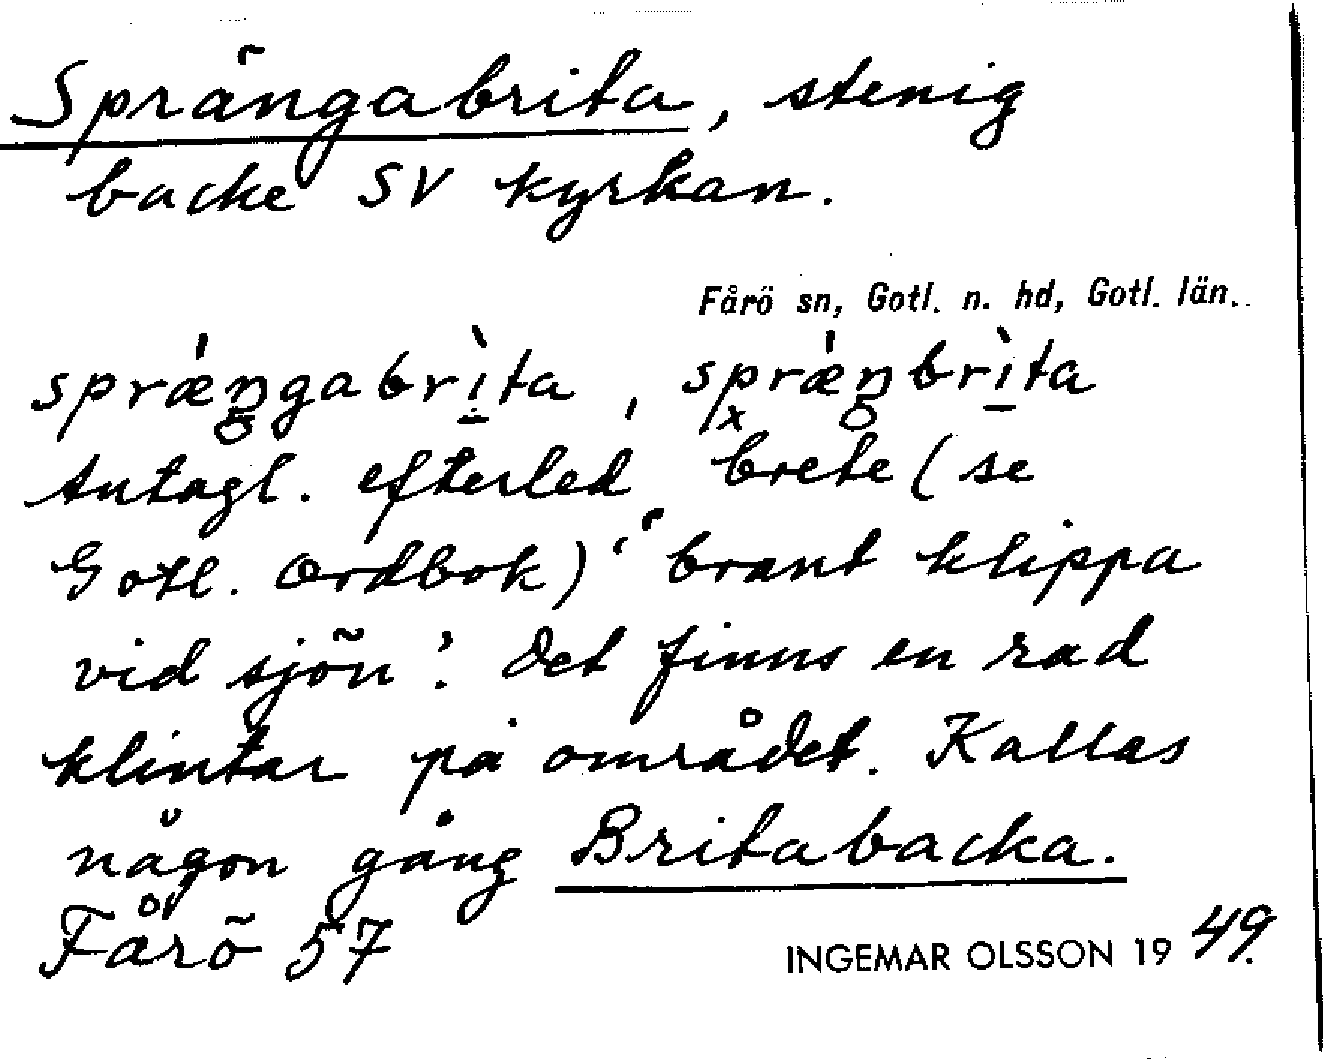 Sprängabrita, stenig
backe SV kyrkan.
Fårö sn, Gotl. n. hd, Gotl. län.
sprǽŋgabrı̀ta, sprǽŋbrı̀ta
Antagl. efterled brete (se
Gotl. ordbok) 'brant klippa
vid sjön'. Det finns en rad
klintar på området. Kallas
någon gång Britabacka.
Fårö 57
INGEMAR OLSSON 1949.